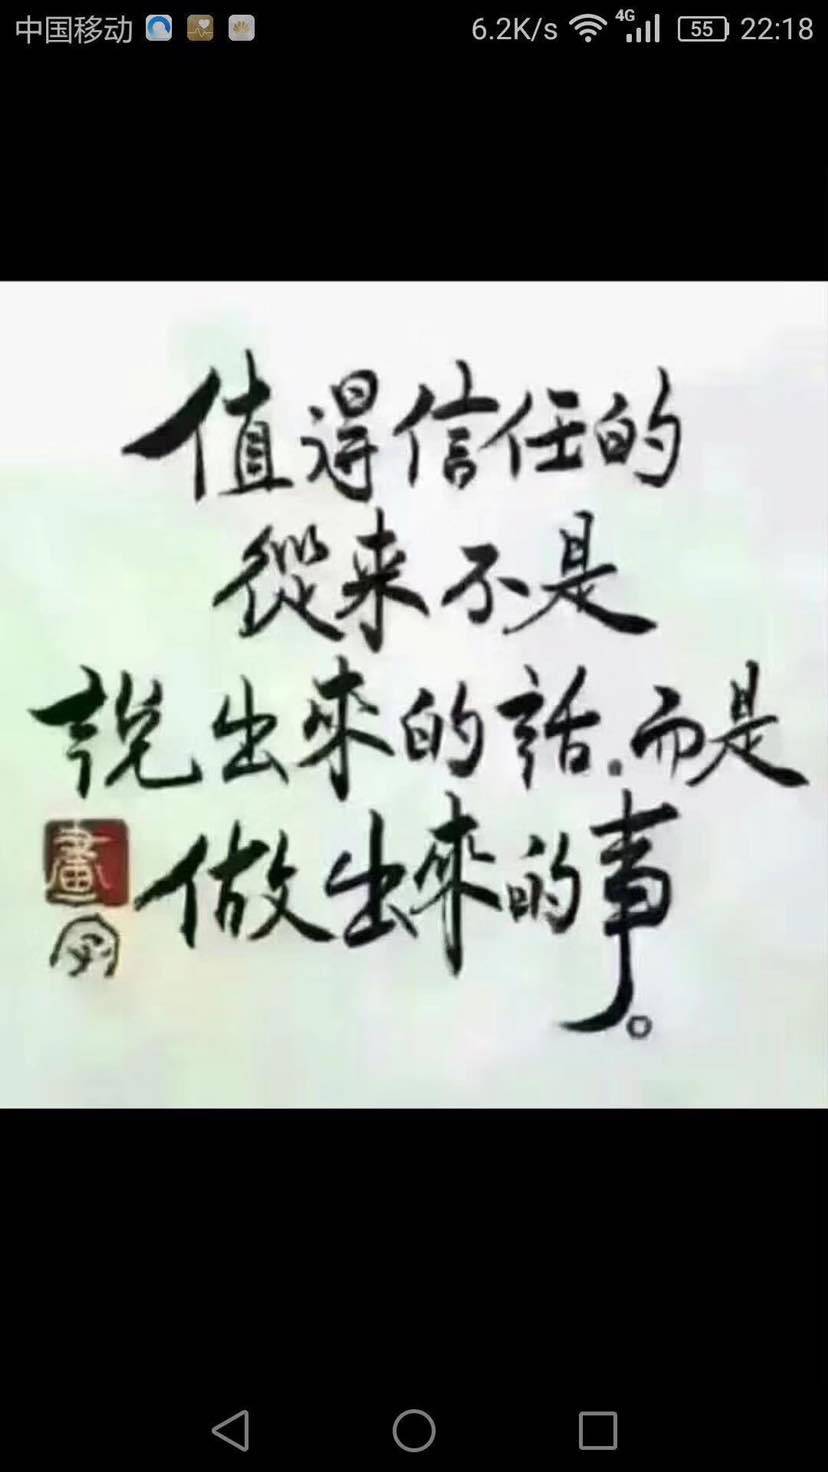 中国移动 6.2K/s 4G 55 22:18
值得信任的
從来不是
說出來的話.而是
做出來的事。
畫